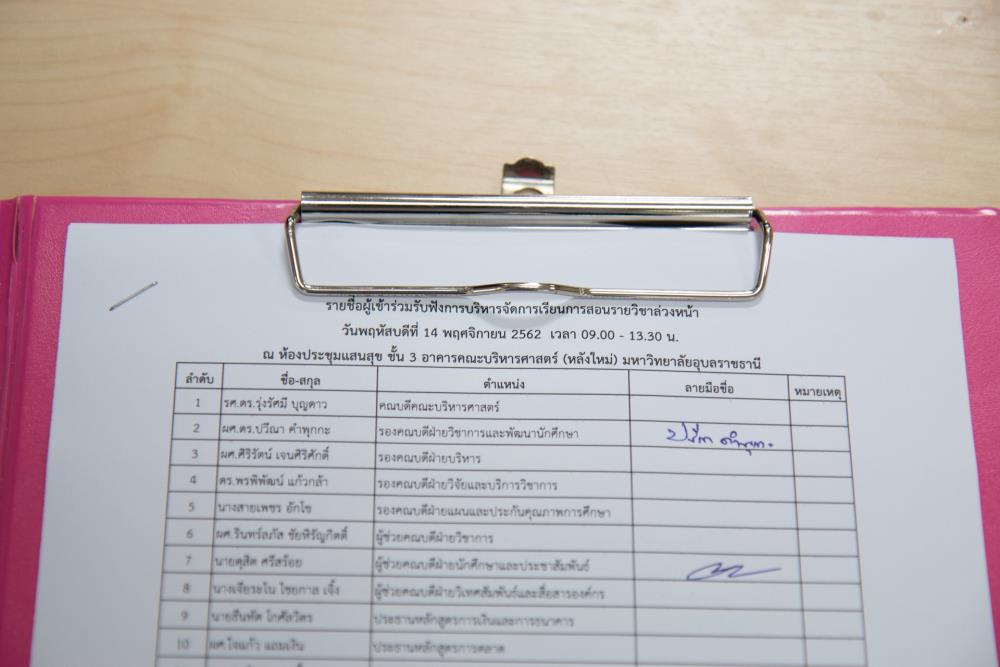 รายชื่อผู้เข้าร่วมรับฟังการบริหารจัดการเรียนการสอนรายวิชาล่วงหน้า
วันพฤหัสบดีที่ 14 พฤศจิกายน 2562 เวลา 09.00 - 13.30 น.
ณ ห้องประชุมแสนสุข ชั้น 3 อาคารคณะบริหารศาสตร์ (หลังใหม่) มหาวิทยาลัยอุบลราชธานี
ลำดับ ชื่อ-สกุล ตำแหน่ง ลายมือชื่อ หมายเหตุ
1 รศ.ดร.รุ่งรัศมี บุญดาว คณบดีคณะบริหารศาสตร์
2 ผศ.ดร.ปวีณา คำพุกกะ รองคณบดีฝ่ายวิชาการและพัฒนานักศึกษา
3 ผศ.ศิริรัตน์ เจนศิริศักดิ์ รองคณบดีฝ่ายบริหาร
4 ดร.พรพิพัฒน์ แก้วกล้า รองคณบดีฝ่ายวิจัยและบริการวิชาการ
5 นางสายเพชร อักโข รองคณบดีฝ่ายแผนและประกันคุณภาพการศึกษา
6 ผศ.รินทร์ลภัส ชัยหิรัญกิตติ์ ผู้ช่วยคณบดีฝ่ายวิชาการ
7 นายดุสิต ศรีสร้อย ผู้ช่วยคณบดีฝ่ายนักศึกษาและประชาสัมพันธ์
8 นางเจียระไน ไชยกาล เจิ้ง ผู้ช่วยคณบดีฝ่ายวิเทศสัมพันธ์และสื่อสารองค์กร
9 นายธันทัต โกศัลวิตร ประธานหลักสูตรการเงินและการธนาคาร
10 ผศ.ใจแก้ว แถมเงิน ประธานหลักสูตรการตลาด